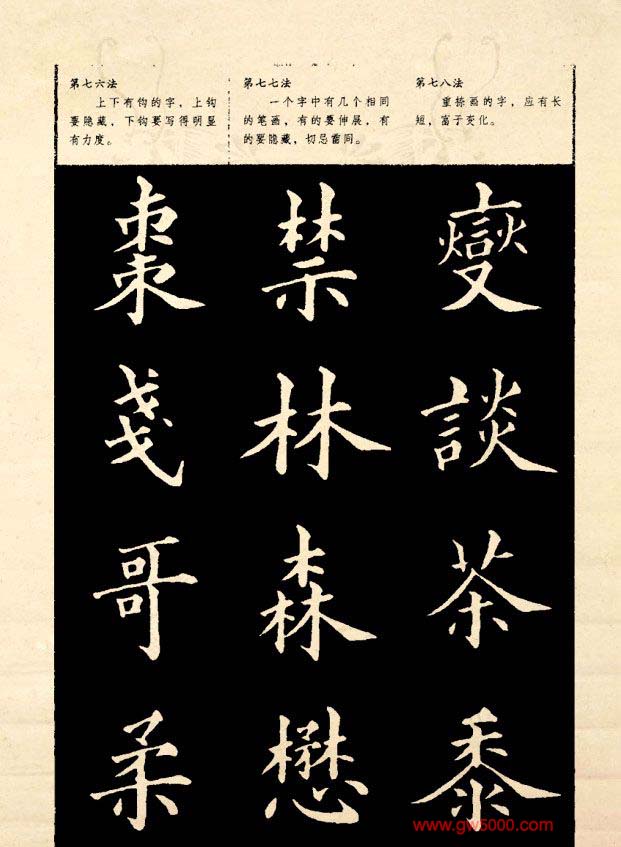 第七六法
上下有钩的字，上钩
要隐藏，下钩要写得明显
有力度。
第七七法
一个字中有几个相同
的笔画，有的要伸展，有
的要隐藏，切忌雷同。
第七八法
重捺画的字，应有长
短，富于变化。
棗
戔
哥
柔
禁
林
森
懋
燮
談
茶
黍
www.gw5000.com